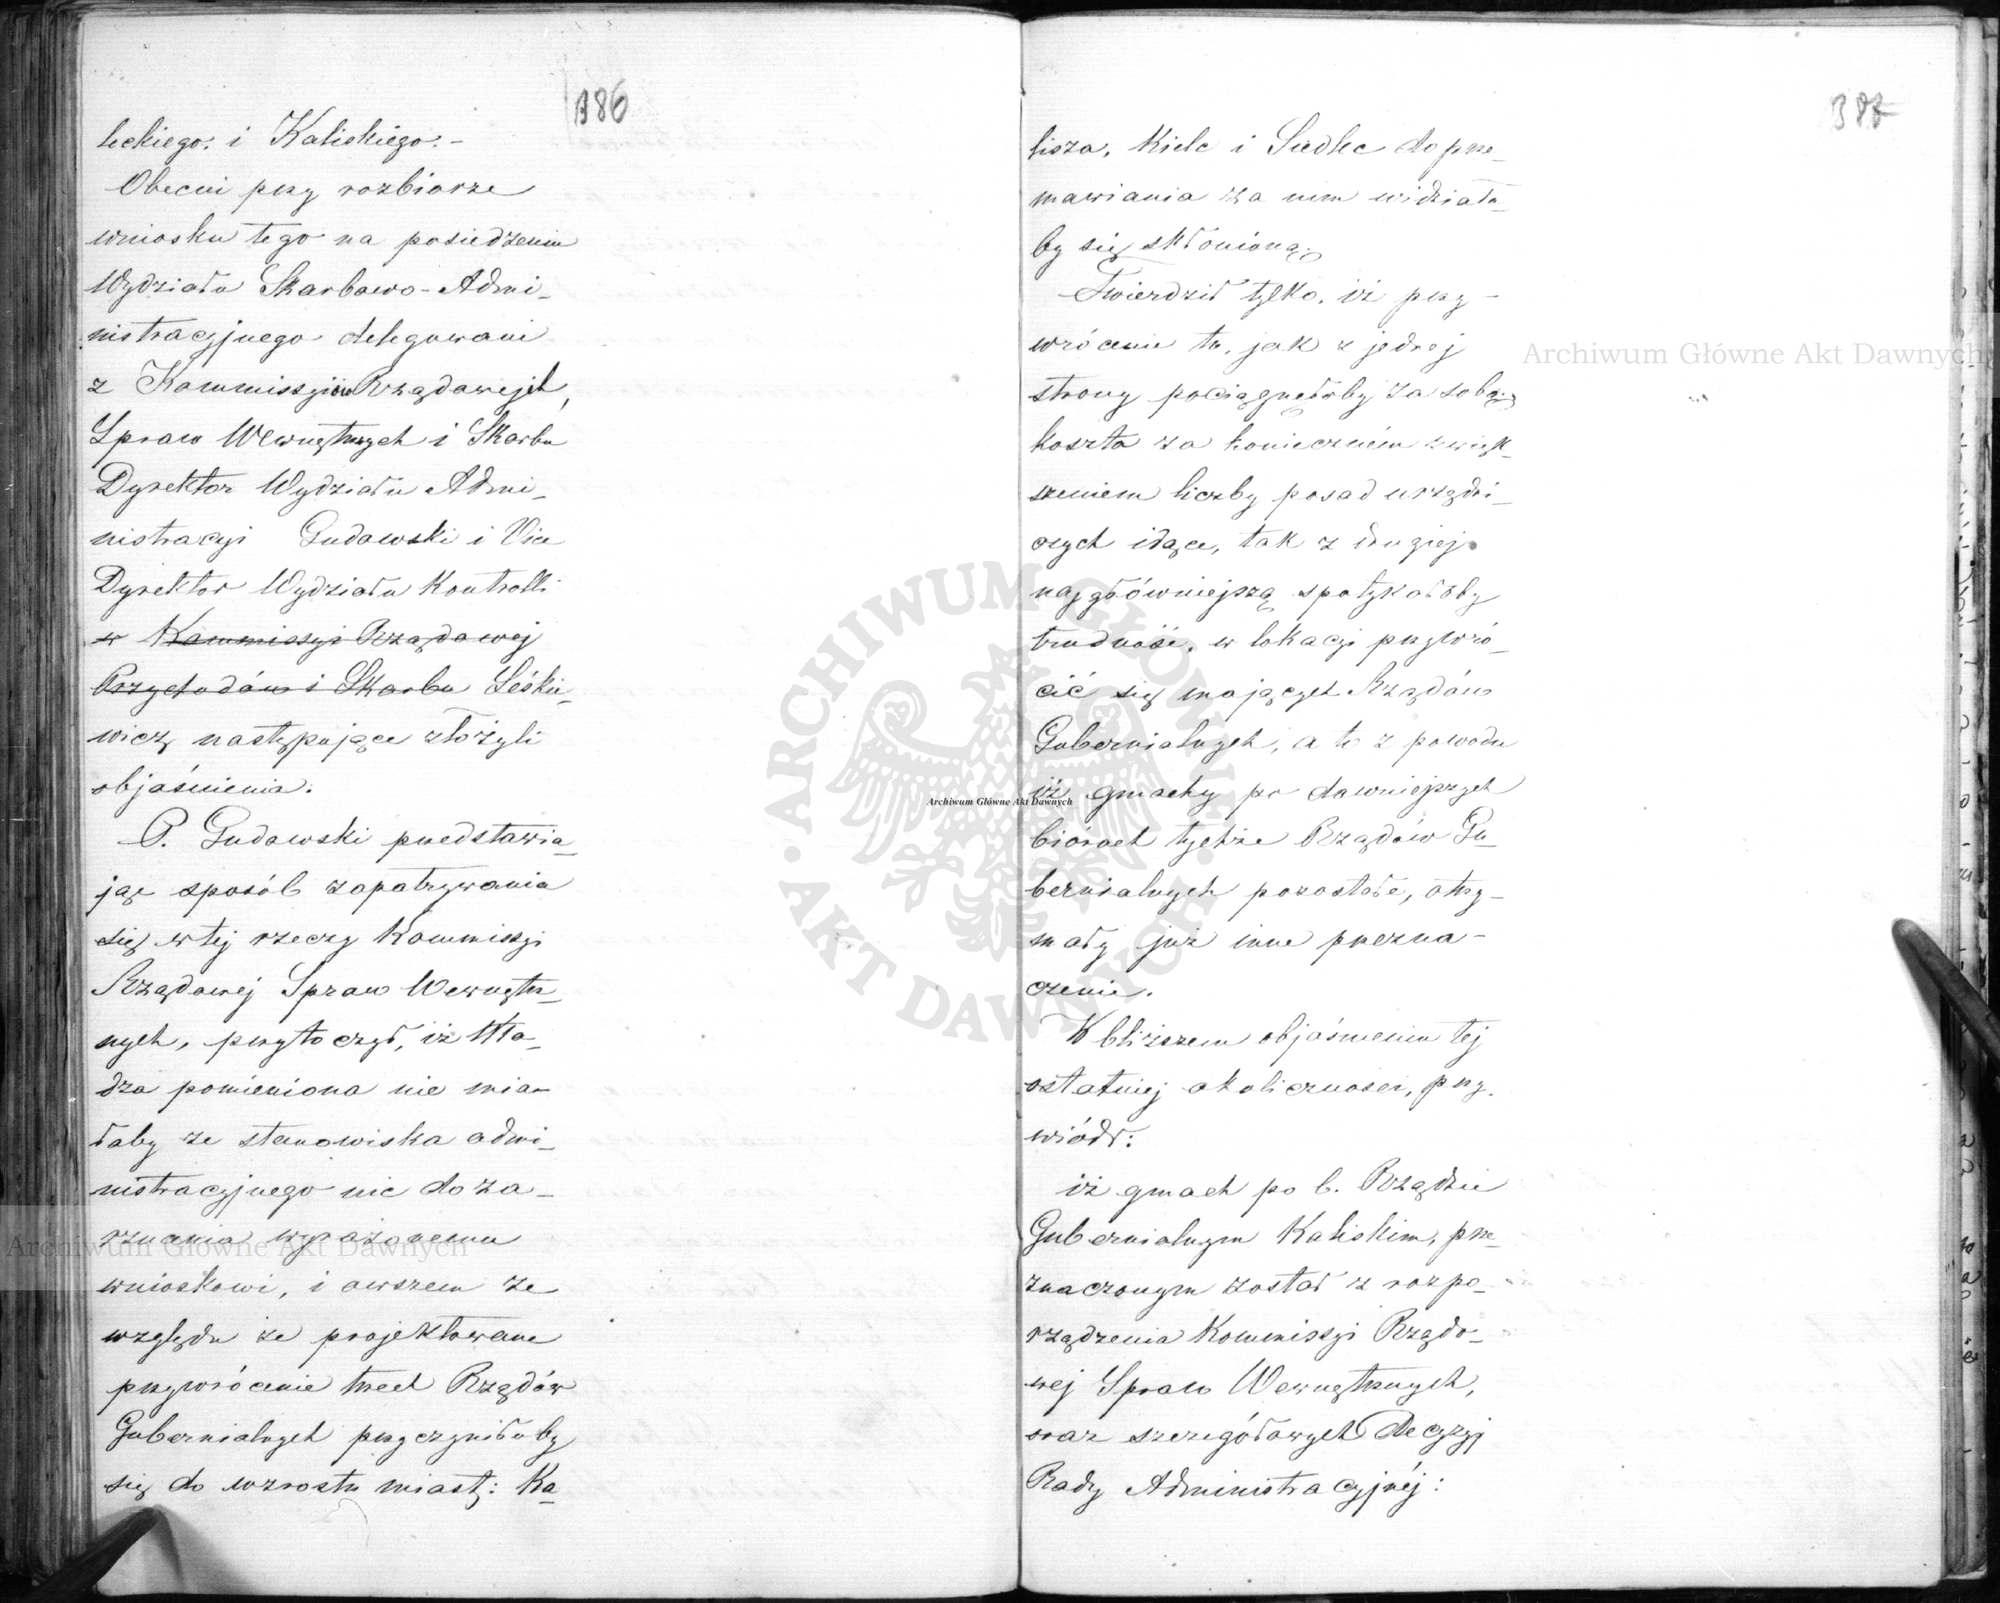 386
leckiego i Kaliskiego.-
Obecni przy rozbiorze
wniosku tego na posiedzeniu
Wydziału Skarbowo-Admi-
nistracyjnego delegowani
z Kommissyiów Rządowych,
Spraw Wewnętrznych i Skarbu
Dyrektor Wydziału Admi-
nistracyi Gudowski i Vice
Dyrektor Wydziału Kontrolli
w Kommissyi Rządowej
Przychodów i Skarbu Leśkie-
wicz, następujące złożyli
objaśnienia:
P. Gudowski przedstawia-
jąc sposób zapatrywania
się w tej rzeczy Kommissyi
Rządowej Spraw Wewnętrz-
nych, przytoczył, iż Wła-
dza pomieniona nie mia-
łaby ze stanowiska admi-
nistracyjnego nic do za-
rzucenia wyrażonemu
wnioskowi, i owszem ze
względu że projektowane
przywrócenie trzech Rządów
Gubernialnych przyczyniłoby
się do wzrostu miast: Ka-
387
lisza, Kielc i Siedlec do prze-
mawiania za nim widziała-
by się skłonioną.
Twierdził tylko, iż przy-
wrócenie to, jak z jednej
strony pociągnęłoby za sobą
koszta za konieczném zwięk-
szeniem liczby posad urzędni-
czych idące, tak z drugiej
najgłówniejszą spotykałoby
trudność, w lokacyi przywró-
cić się mających Rządów
Gubernialnych, a to z powodu
iż gmachy po dawniejszych
biórach tychże Rządów Gu-
bernialnych pozostałe, otrzy-
mały już inne przezna-
czenie.
W bliższem objaśnieniu tej
ostatniej okoliczności, przy-
wiódł:
iż gmach po b. Rządzie
Gubernialnym Kaliskim, prze-
znaczonym został z rozpo-
rządzenia Kommissyi Rządo-
wej Spraw Wewnętrznych,
oraz szczegółowych Decyzyj
Rady Administracyjnéj:
Archiwum Główne Akt Dawnych
Archiwum Główne Akt Dawnych
Archiwum Główne Akt Dawnych
ARCHIWUM GŁÓWNE
AKT DAWNYCH